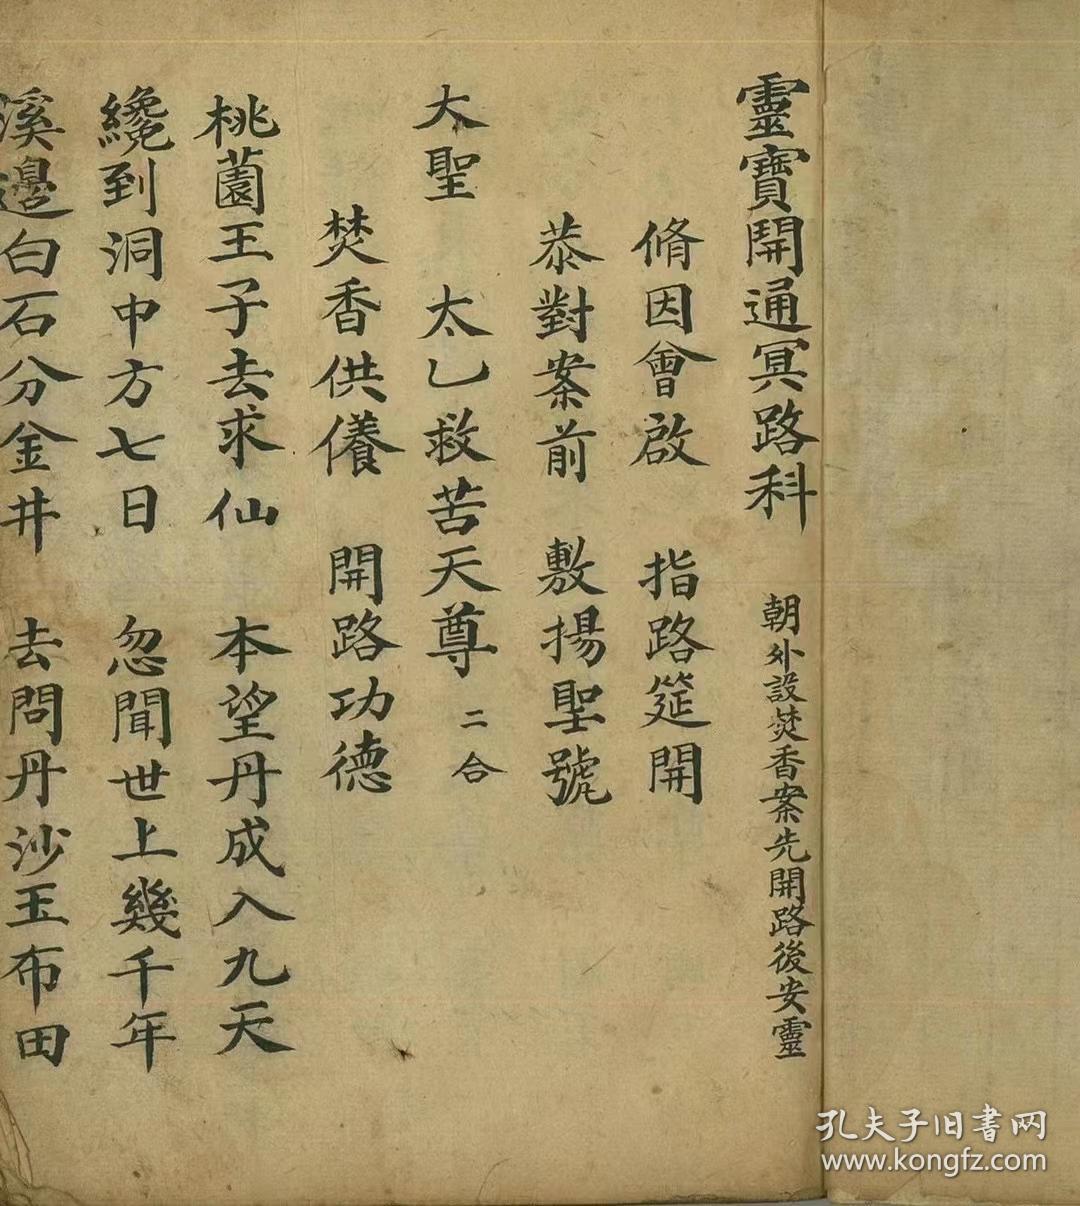 靈寶開通冥路科 朝外設焚香案先開路後安靈
脩因會啟 指路筵開
恭對案前 敷揚聖號
大聖 太乙救苦天尊 二合
焚香供養 開路功德
桃薗王子去求仙 本望丹成入九天
纔到洞中方七日 忽聞世上幾千年
溪邊白石分金井 去問丹沙玉布田
孔夫子旧书网
www.kongfz.com